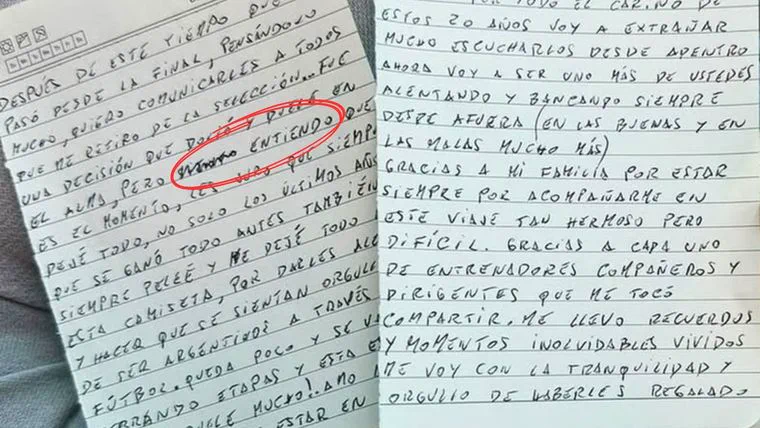 DESPUÉS DE ESTE TIEMPO QUE
PASÓ DESDE LA FINAL, PENSÁNDOLO
MUCHO, QUIERO COMUNICARLES A TODOS
QUE ME RETIRO DE LA SELECCIÓN... FUE
UNA DECISIÓN QUE DOLIÓ Y DUELE EN
EL ALMA, PERO ENTIENDO QUE
ES EL MOMENTO, LES JURO QUE SIEMP
DEJÉ TODO, NO SOLO LOS ÚLTIMOS AÑOS
QUE SE GANÓ TODO ANTES TAMBIÉN
SIEMPRE PELEÉ Y ME DEJÉ TODO
ESTA CAMISETA, POR DARLES ALE
Y HACER QUE SE SIENTAN ORGULL
DE SER ARGENTINOS A TRAVÉS
FÚTBOL. QUEDA POCO Y SE VA
ERRANDO ETAPAS Y ESTA E
UELE MUCHO!. AMO A
ESTAR EN
POR TODO EL CARIÑO DE
ESTOS 20 AÑOS VOY A EXTRAÑAR
MUCHO ESCUCHARLOS DESDE ADENTRO
AHORA VOY A SER UNO MÁS DE USTEDES
ALENTANDO Y BANCANDO SIEMPRE
DESDE AFUERA (EN LAS BUENAS Y EN
LAS MALAS MUCHO MÁS)
GRACIAS A MI FAMILIA POR ESTAR
SIEMPRE POR ACOMPAÑARME EN
ESTE VIAJE TAN HERMOSO PERO
DIFÍCIL. GRACIAS A CADA UNO
DE ENTRENADORES COMPAÑEROS Y
DIRIGENTES QUE ME TOCÓ
COMPARTIR. ME LLEVO RECUERDOS
Y MOMENTOS INOLVIDABLES VIVIDOS
ME VOY CON LA TRANQUILIDAD Y
ORGULLO DE HABERLES REGALADO